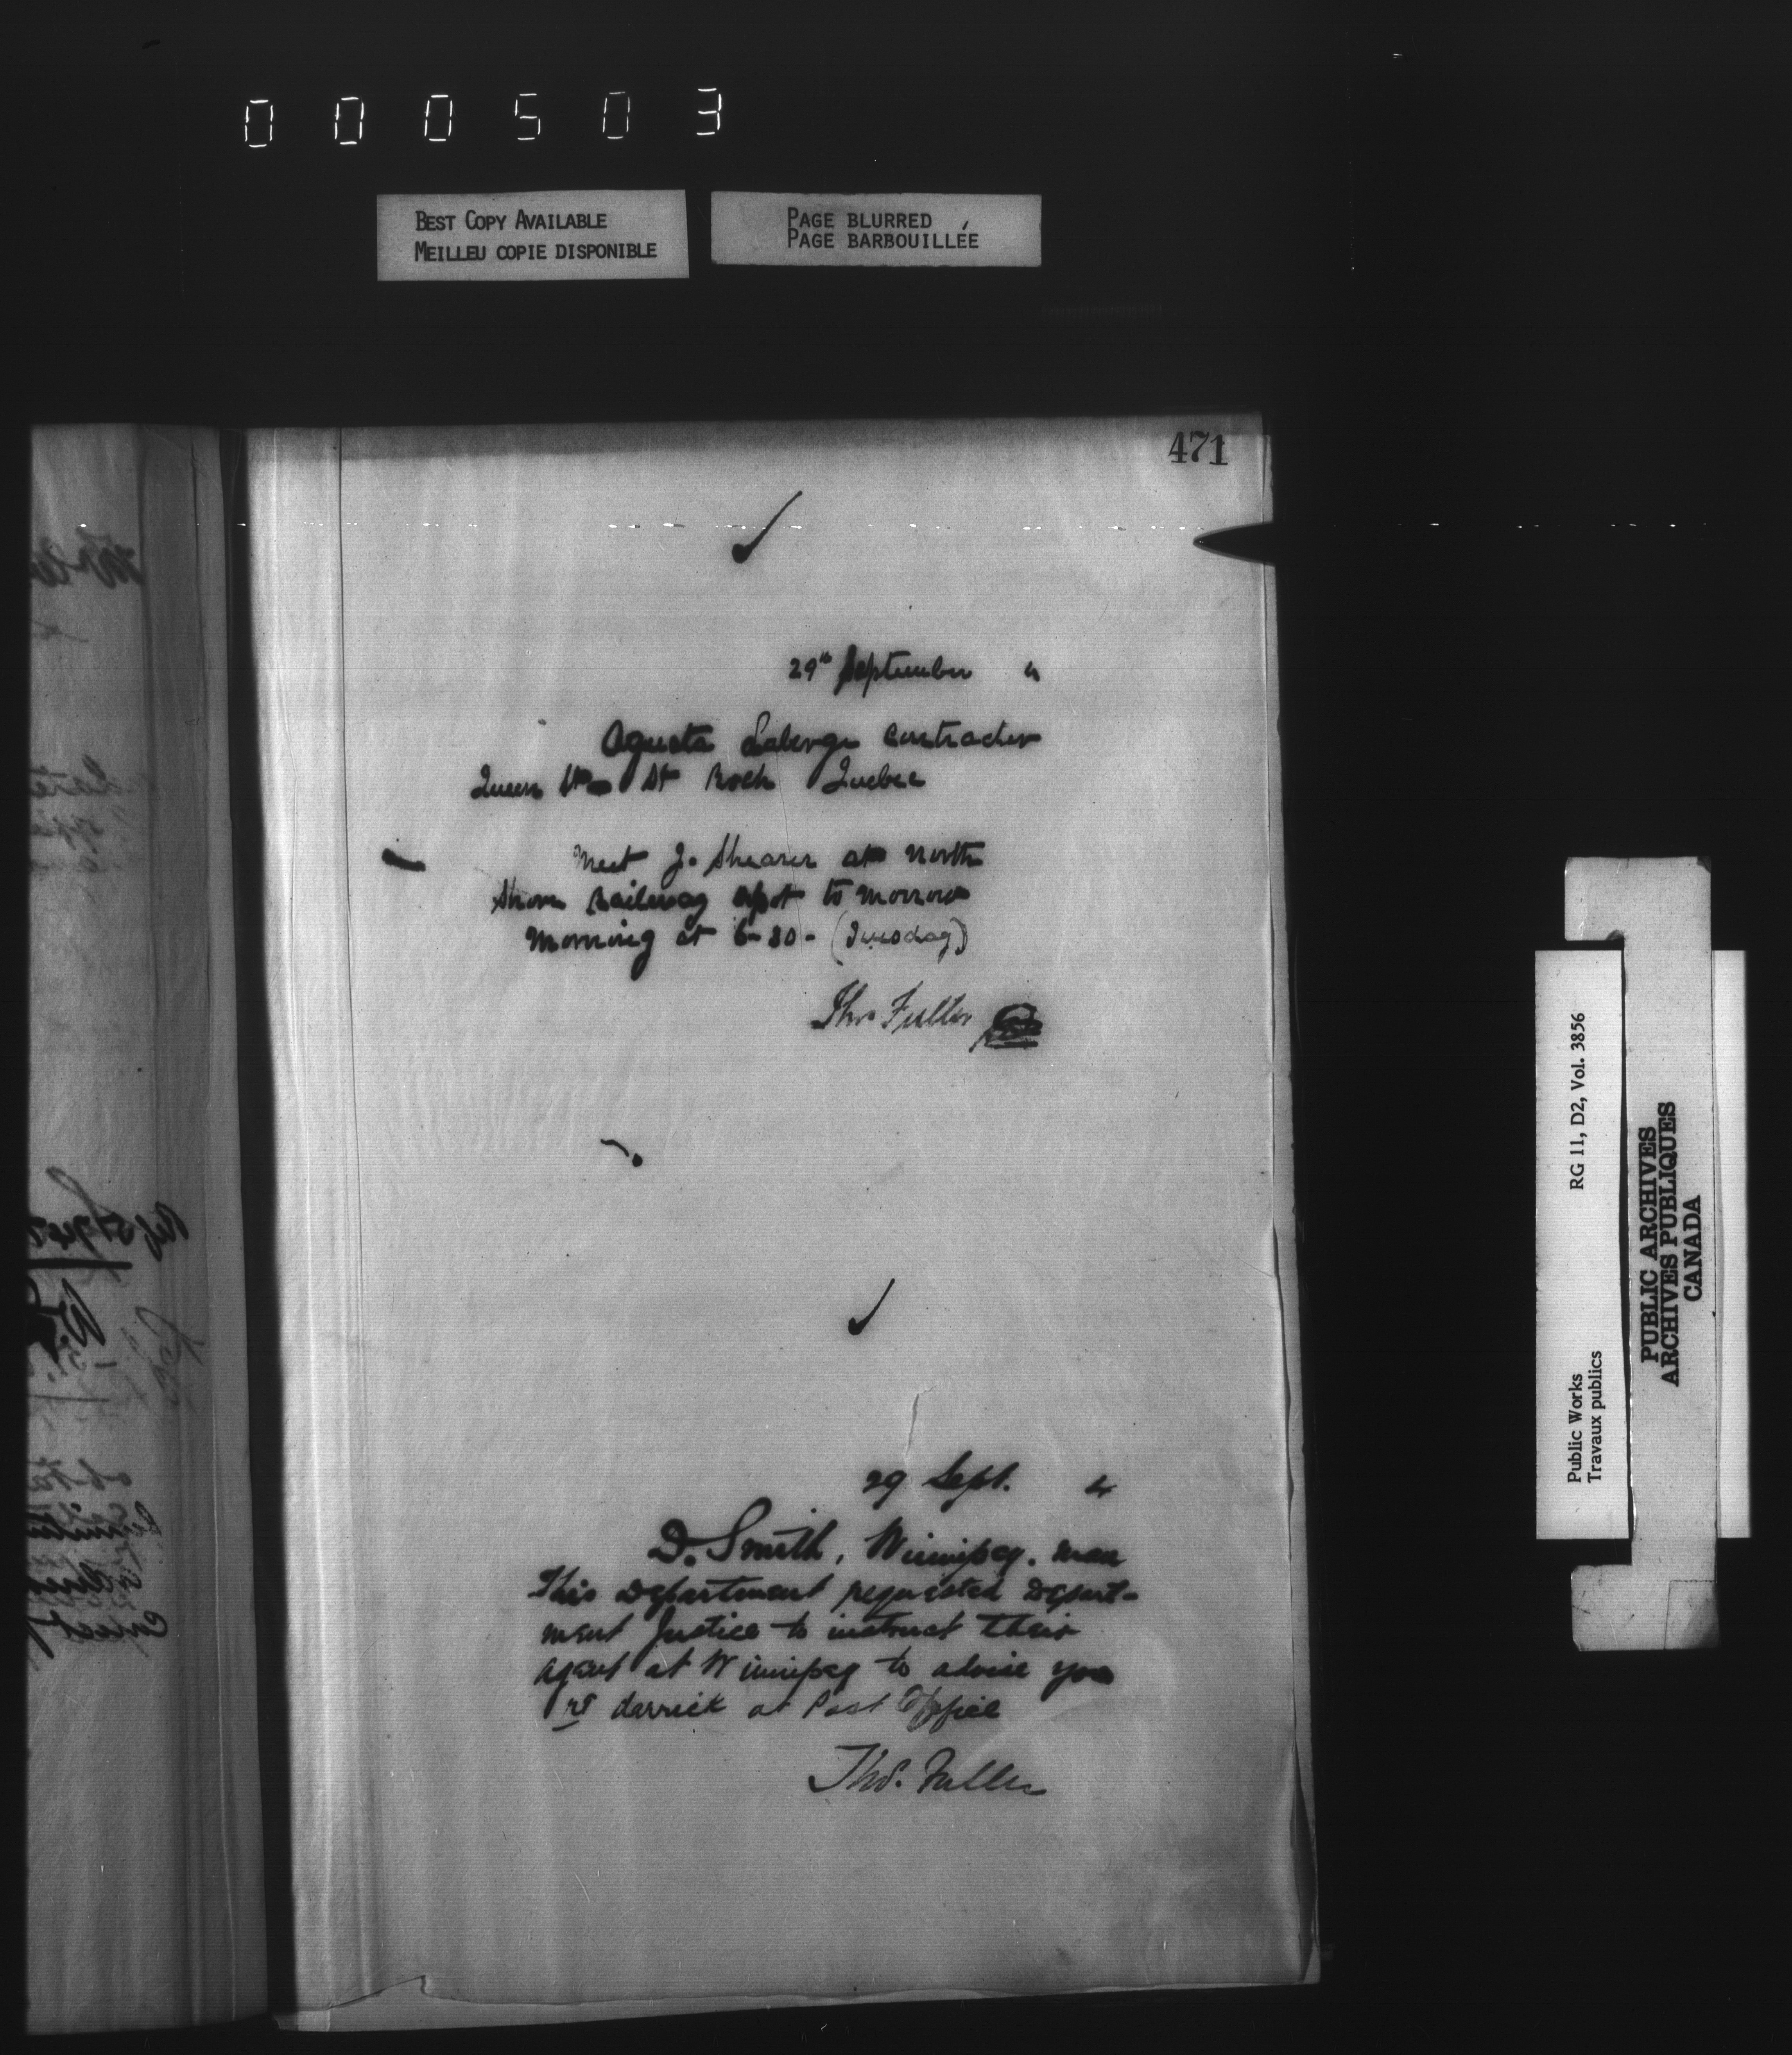 000503
BEST COPY AVAILABLE
MEILLEU COPIE DISPONIBLE
PAGE BLURRED
PAGE BARBOUILLÉE
471
29th September 4
Agusta Laberge Contractor
Queen St St Roch Quebec
Meet J. Shearer at North
Shore Railway depot to morrow
morning at 6-30- (Tuesday)
Thos Fuller
29 Sept. 4
D. Smith, Winnipeg. Man
This Department requested Depart-
ment Justice to instruct their
agent at Winnipeg to advise you
re derrick at Post Office
Thos. Fuller
Public Works
Travaux publics
RG 11, D2, Vol. 3856
PUBLIC ARCHIVES
ARCHIVES PUBLIQUES
CANADA